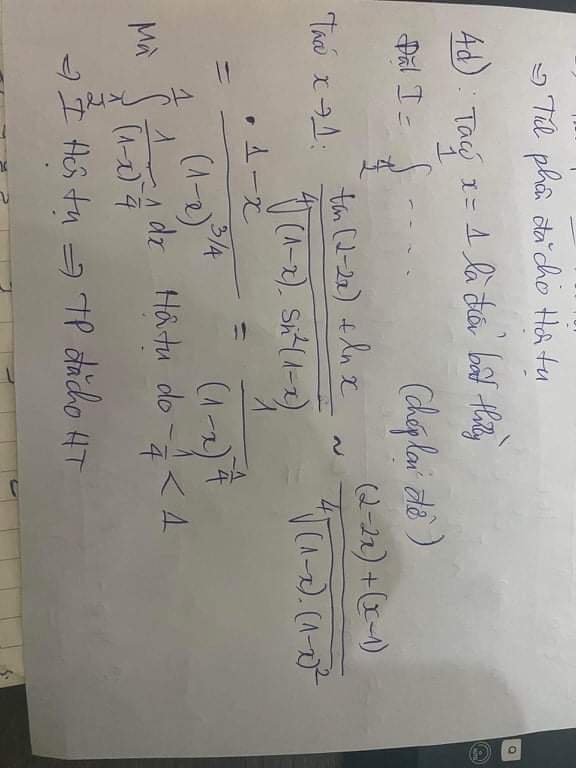 ⇒ Tích phân đã cho Hội tụ
4d): Ta có x = 1 là điểm bất thường
Đặt I = ∫_{1/2}^{1} .... (chép lại đề)
Ta có x → 1: \frac{tan(2-2x) + ln x}{\sqrt[4]{(1-x).sin^2(1-x)}} ~ \frac{(2-2x) + (x-1)}{\sqrt[4]{(1-x).(1-x)^2}}
= \frac{1-x}{(1-x)^{3/4}} = \frac{1}{(1-x)^{-\frac{1}{4}}}
Mà ∫_{1/2}^{1} \frac{1}{(1-x)^{-\frac{1}{4}}} dx Hội tụ do -\frac{1}{4} < 1
⇒ I Hội tụ ⇒ TP đã cho HT